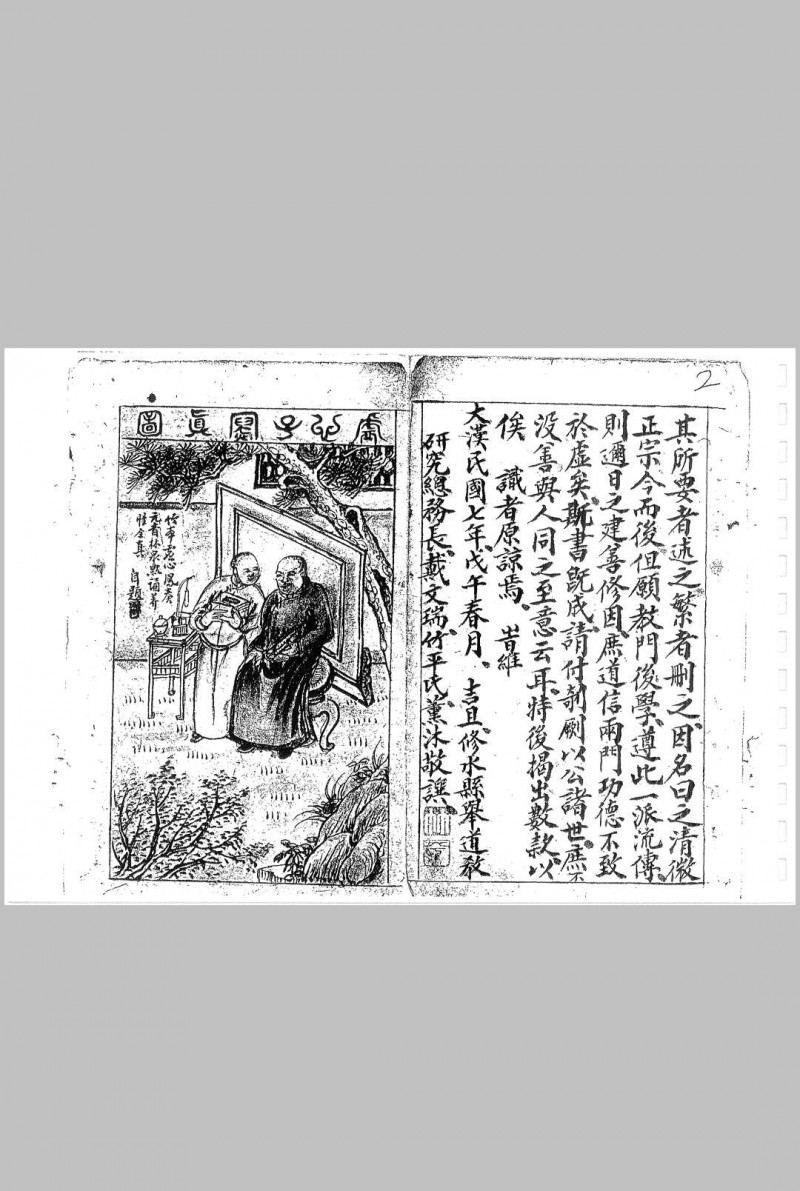 2
其所要者述之繁者刪之因名曰之清微
正宗今而後但願教門後學遵此一派流傳
則邇日之建善修因庶道信兩門功德不致
於虛矣斯書既成請付剞劂以公諸世庶不
没善與人同之至意云耳特後揭出數款以
俟 識者原諒焉 旹維
大漢民國七年戊午春月 吉旦修水縣舉道教
研究總務長戴文瑞竹平氏薰沐敬譔
虛 子 真圖
竹平虛心
性全真 自題